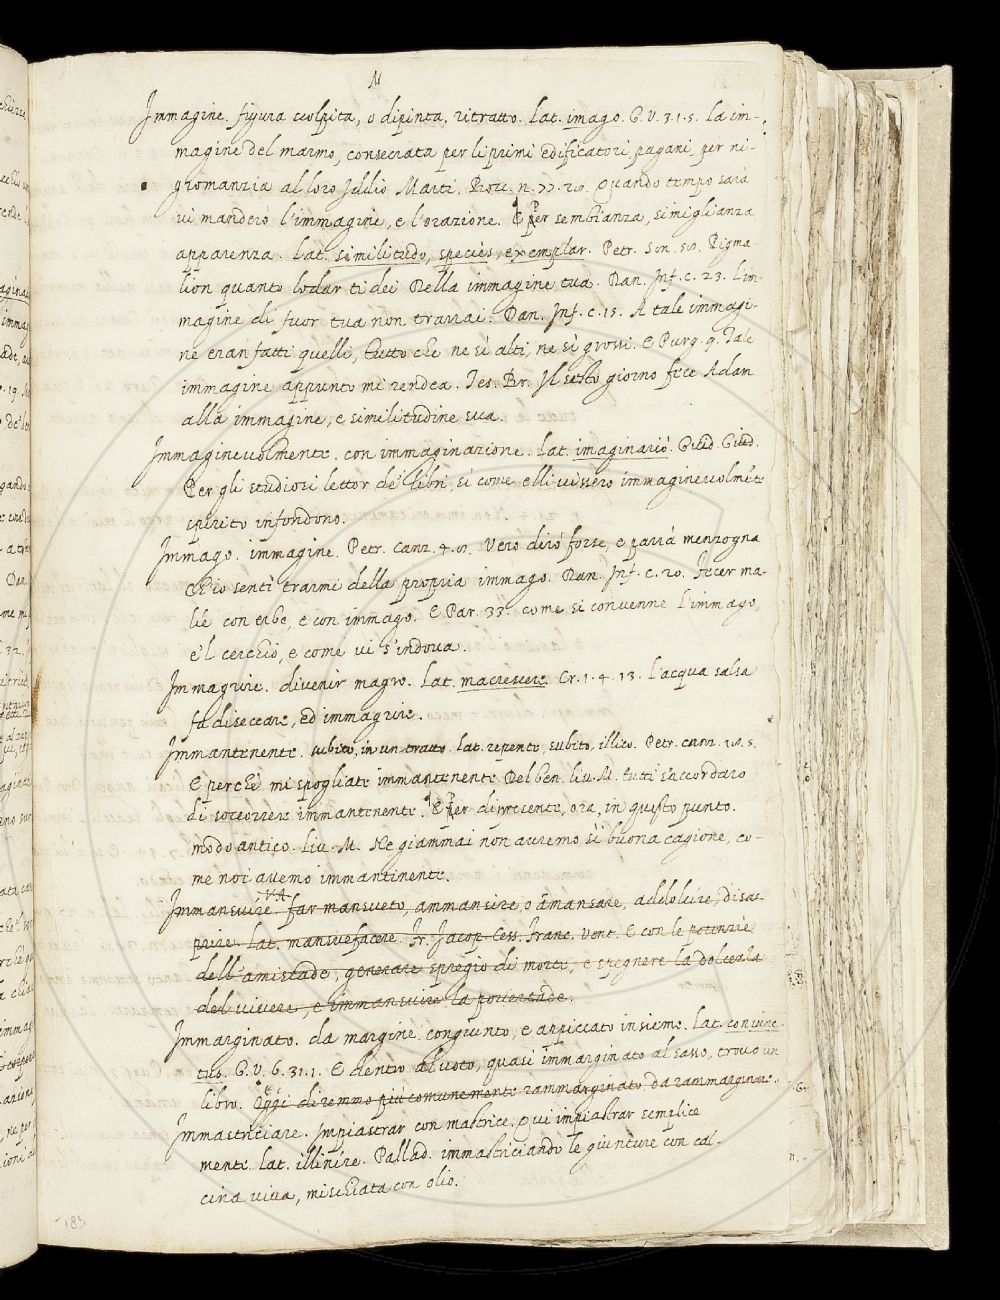 M
Immagine. figura scolpita, o dipinta, ritratto. Lat. imago. G. V. 3. 1. 5. La im-
magine del marmo, consecrata per li primi edificatori, pagani, per ni-
gromanzia al loro Iddio Marti. Quando tempo sarà
vi manderò l'immagine, e l'orazione. E per sembianza, simiglianza
apparenza. Lat. similitudo, species, exemplar. Petr. Son. Pigma-
lion quanto lodar ti dei Della immagine tua. Dan. Inf. c. 23. L'im-
magine di fuor tua non trarrai. Dan. Inf. c. 15. A tale immagi-
ne eran fatti quelli, tutto che ne sì alti, ne sì grossi. E Purg. 9. Tale
immagine appunto mi rendea. Tes. Br. Il sesto giorno fece Adan
alla immagine, e similitudine sua.
Immaginevolmente. con immaginazione. Lat. imaginariò. Guid. Giud.
Per gli studiosi lettor de' libri, si come elli vissero immaginevolmēte
spirito infondono.
Immago. immagine. Petr. Canz. 4. Vero dirò forse, e parrà menzogna
Ch'io sentì trarmi della propria immago. Dan. Inf. c. 20. Fecer ma-
lie con erbe, e con immago. E Par. 33. come si convenne L'immago,
e'l cerchio, e come vi s'indova.
Immagrire. divenir magro. Lat. macrescere. Cr. 1. 4. 13. L'acqua salsa
fa diseccare, ed immagrire.
Immantenente. subito, in un tratto. Lat. repente, subito, illico. Petr. canz.
E perchè mi spogliate immantenente Del ben. Liv. M. tutti s'accordaro
di soccorrere immantenente. E per di presente, ora, in questo punto.
modo antico. Liv. M. Ne giammai non avremo sì buona cagione, co-
me noi avemo immantinente.
Immansuire. far mansueto, ammansire, o āmansare, addolcire, disas-
prire. Lat. mansuefacere. Fr. Jacop. Cess. Franc. Vent. E con le potenzie
dell'amistade, generare spregio di morte, e spegnere la dolcezza
del vivere, e immansuire la povertade.
Immarginato. da margine. congiunto, e appiccato insieme. Lat. coniunc-
tus. G. V. 6. 31. 1. E dentro al voto, quasi immarginato al sasso, trovò un
libro. Oggi diremmo più comunemente rammarginato, da rammarginare.
Immastriciare. Impiastrar con mastrice. qui impiastrar semplice
mente. Lat. illinire. Pallad. immastriciando le giunture con cal-
cina viva, mischiata con olio.
185